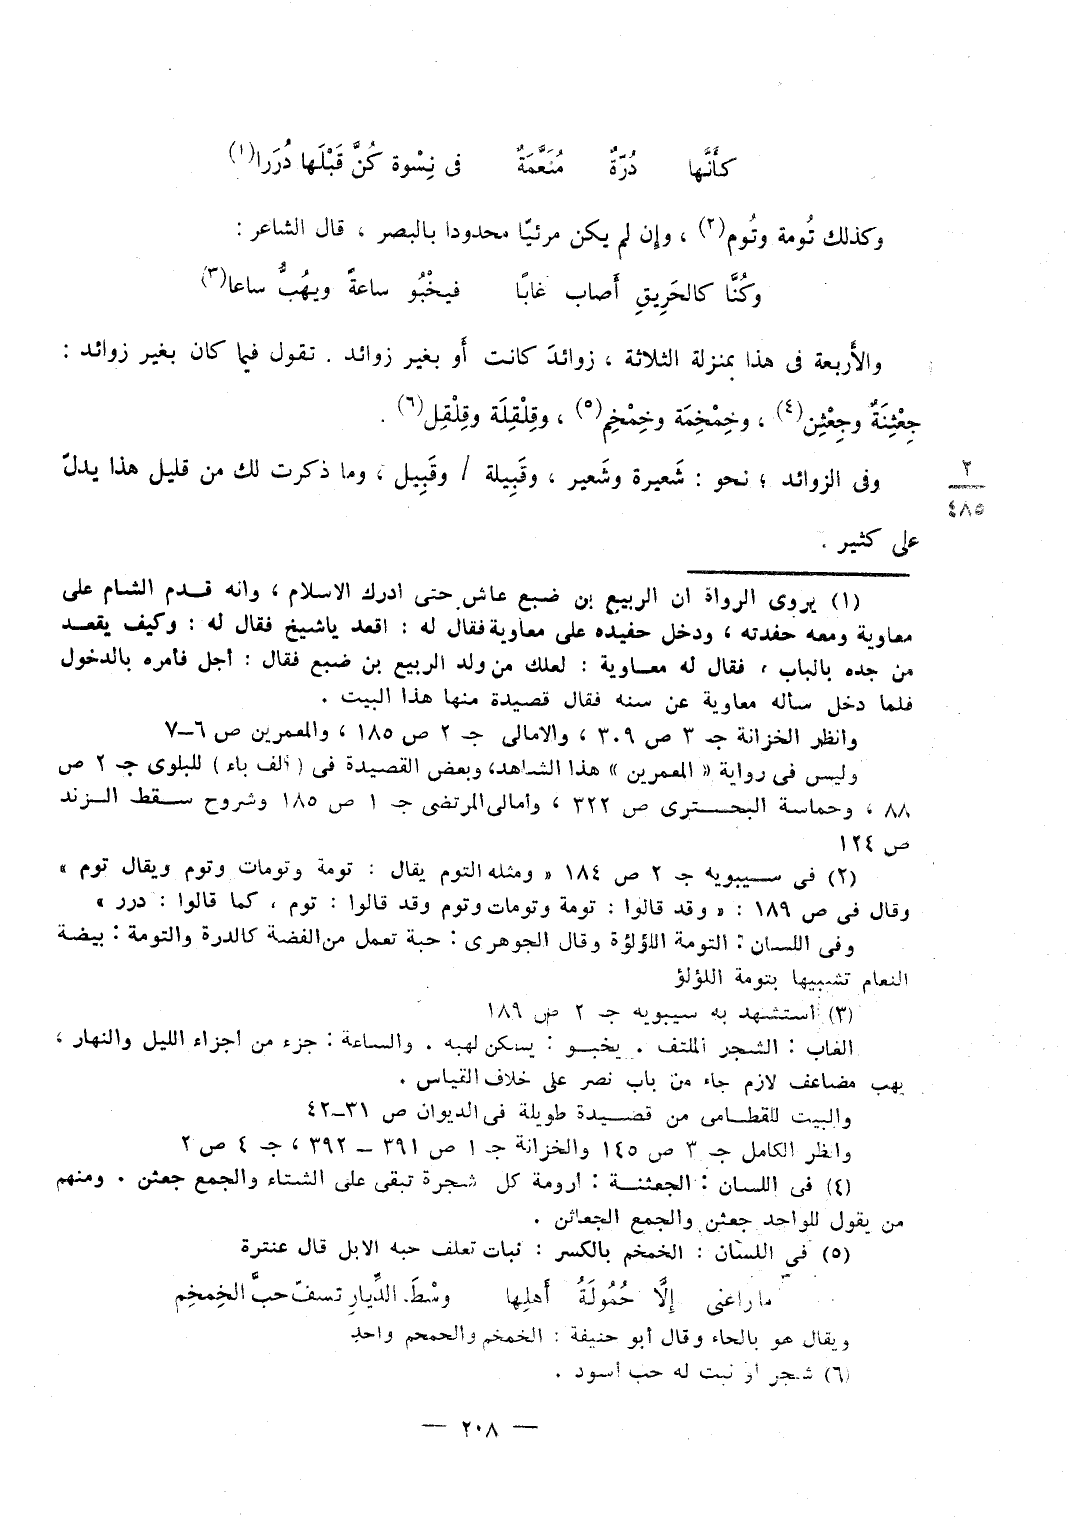 كأَنَّها دُرّةٌ مُنَعَّمَةٌ فى نِسْوة كُنَّ قَبْلَها دُرَرا(١)
وكذلك تُومة وتُوم(٢) ، وإن لم يكن مرئيّا محدودا بالبصر ، قال الشاعر :
وكُنَّا كالحَرِيقِ أَصاب غابًا فيخْبُو ساعةً ويهُبُّ ساعا(٣)
والأَربعة فى هذا بمنزلة الثلاثة ، زوائدَ كانت أَو بغير زوائد . تقول فيما كان بغير زوائد :
جِعْثِنَةٌ وجِعْثِن(٤) ، وخِمْخِمَة وخِمْخِم(٥) ، وقِلْقِلَة وقِلْقِل(٦) .
وفى الزوائد ؛ نحو : شَعيرة وشَعير ، وقَبِيلة / وقَبِيل ، وما ذكرت لك من قليل هذا يدلّ
٢
٤٨٥
على كثير .
(١) يروى الرواة ان الربيع بن ضبع عاش حتى ادرك الاسلام ، وانه قدم الشام على
معاوية ومعه حفدته ، ودخل حفيده على معاوية فقال له : اقعد ياشيخ فقال له : وكيف يقعد
من جده بالباب ، فقال له معاوية : لعلك من ولد الربيع بن ضبع فقال : أجل فأمره بالدخول
فلما دخل سأله معاوية عن سنه فقال قصيدة منها هذا البيت .
وانظر الخزانة جـ ٣ ص ٣٠٩ ، والامالى جـ ٢ ص ١٨٥ ، والمعمرين ص ٦–٧
وليس فى رواية « المعمرين » هذا الشاهد، وبعض القصيدة فى ( ألف باء ) للبلوى جـ ٢ ص
٨٨ ، وحماسة البحترى ص ٣٢٢ ، وأمالى المرتضى جـ ١ ص ١٨٥ وشروح سقط الزند
ص ١٢٤
(٢) فى سيبويه جـ ٢ ص ١٨٤ « ومثله التوم يقال : تومة وتومات وتوم ويقال توم »
وقال فى ص ١٨٩ : « وقد قالوا : تومة وتومات وتوم وقد قالوا : توم ، كما قالوا : درر »
وفى اللسان : التومة اللؤلؤة وقال الجوهرى : حبة تعمل من الفضة كالدرة والتومة : بيضة
النعام تشبيها بتومة اللؤلؤ
(٣) استشهد به سيبويه جـ ٢ ص ١٨٩
الغاب : الشجر الملتف . يخبو : يسكن لهبه . والساعة : جزء من أجزاء الليل والنهار ،
يهب مضاعف لازم جاء من باب نصر على خلاف القياس .
والبيت للقطامى من قصيدة طويلة فى الديوان ص ٣١–٤٢
وانظر الكامل جـ ٣ ص ١٤٥ والخزانة جـ ١ ص ٣٩١ – ٣٩٢ ، جـ ٤ ص ٢
(٤) فى اللسان : الجعثنة : ارومة كل شجرة تبقى على الشتاء والجمع جعثن . ومنهم
من يقول للواحد جعثن والجمع الجعاثن .
(٥) فى اللسان : الخمخم بالكسر : نبات تعلف حبه الابل قال عنترة
ما راعنى إلَّا حُمُولَةُ أَهلِها وسْطَ الدِّيارِ تسفّ حبَّ الخِمخِم
ويقال هو بالحاء وقال أبو حنيفة : الخمخم والحمحم واحد
(٦) شجر أو نبت له حب أسود .
— ٢٠٨ —